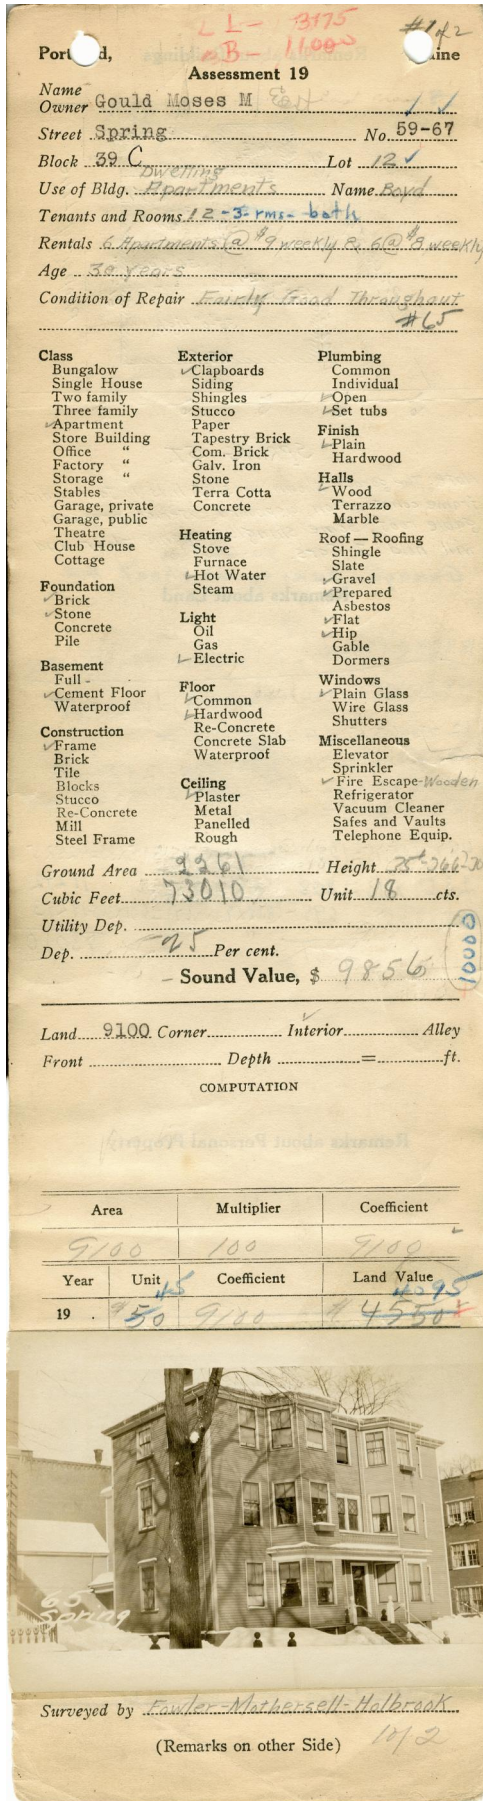 L L- 3175
B- 11000
#1 of 2
Port d, aine
Assessment 19
Name
Owner Gould Moses M
Street Spring No. 59-67
Block 39 C Lot 12 ✓
Dwelling
Use of Bldg. Apartments Name Boyd
Tenants and Rooms 12-3 rms- bath
Rentals 6 Apartments @ $9 weekly & 6 @ $8 weekly
Age 30 years
Condition of Repair Fairly Good Throughout
#65
Class
Bungalow
Single House
Two family
Three family
✓Apartment
Store Building
Office "
Factory "
Storage "
Stables
Garage, private
Garage, public
Theatre
Club House
Cottage
Foundation
✓Brick
✓Stone
Concrete
Pile
Basement
Full -
✓Cement Floor
Waterproof
Construction
✓Frame
Brick
Tile
Blocks
Stucco
Re-Concrete
Mill
Steel Frame
Exterior
✓Clapboards
Siding
Shingles
Stucco
Paper
Tapestry Brick
Com. Brick
Galv. Iron
Stone
Terra Cotta
Concrete
Heating
Stove
Furnace
✓Hot Water
Steam
Light
Oil
Gas
✓Electric
Floor
✓Common
✓Hardwood
Re-Concrete
Concrete Slab
Waterproof
Ceiling
✓Plaster
Metal
Panelled
Rough
Plumbing
Common
Individual
✓Open
✓Set tubs
Finish
✓Plain
Hardwood
Halls
✓Wood
Terrazzo
Marble
Roof — Roofing
Shingle
Slate
✓Gravel
✓Prepared
Asbestos
✓Flat
✓Hip
Gable
Dormers
Windows
✓Plain Glass
Wire Glass
Shutters
Miscellaneous
Elevator
Sprinkler
✓Fire Escape-Wooden
Refrigerator
Vacuum Cleaner
Safes and Vaults
Telephone Equip.
Ground Area 2261 Height
Cubic Feet 73010 Unit 18 cts.
Utility Dep.
Dep. 25 Per cent.
10000
Sound Value, $ 9856
Land 9100 Corner Interior ✓ Alley
Front Depth = ft.
COMPUTATION
Area Multiplier Coefficient
9100 100 9100 ✓
Year Unit Coefficient Land Value
45 4095
19 . $50 9100 $4550
65
Spring
Surveyed by Fowler-Mothersell-Holbrook
1 of 2
(Remarks on other Side)